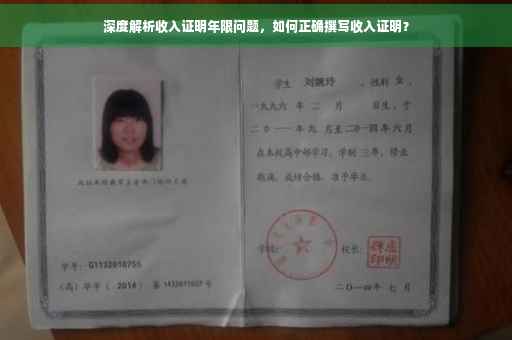 深度解析收入证明年限问题，如何正确撰写收入证明？
学生 刘婉玲 ，性别 女 ，
一九九六 年 二 月 日生，于
二0一一年 九 月至二0一四年 六 月
在本校高中部学习，学制 三年，修业
期满，成绩合格，准予毕业。
学校： 校长：
二〇一四年 七 月
学号： G1132010755
（高）毕字（ 2014 ）第 1432011027 号